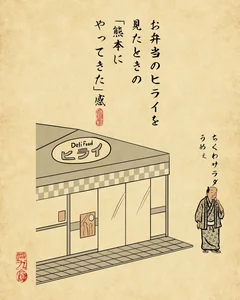 お弁当のヒライを
見たときの
「熊本に
やってきた」感
Deli Food
ヒライ
ちくわサラダ
うめぇ